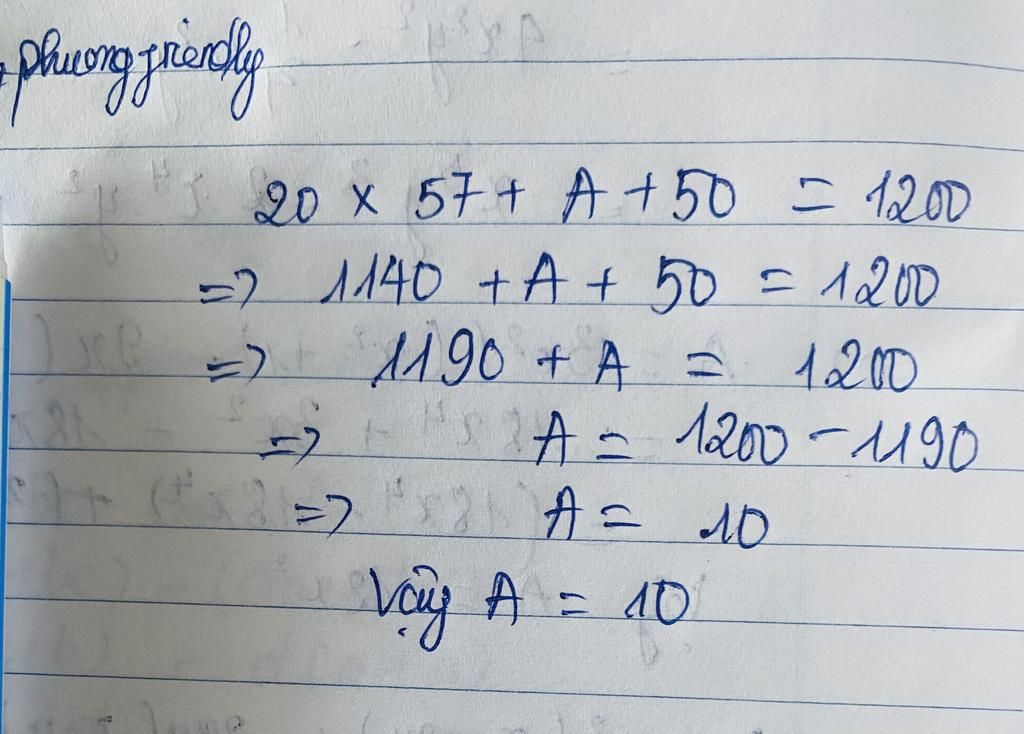 phuongfriendly
20 x 57 + A + 50 = 1200
=> 1140 + A + 50 = 1200
=> 1190 + A = 1200
=> A = 1200 - 1190
=> A = 10
Vậy A = 10